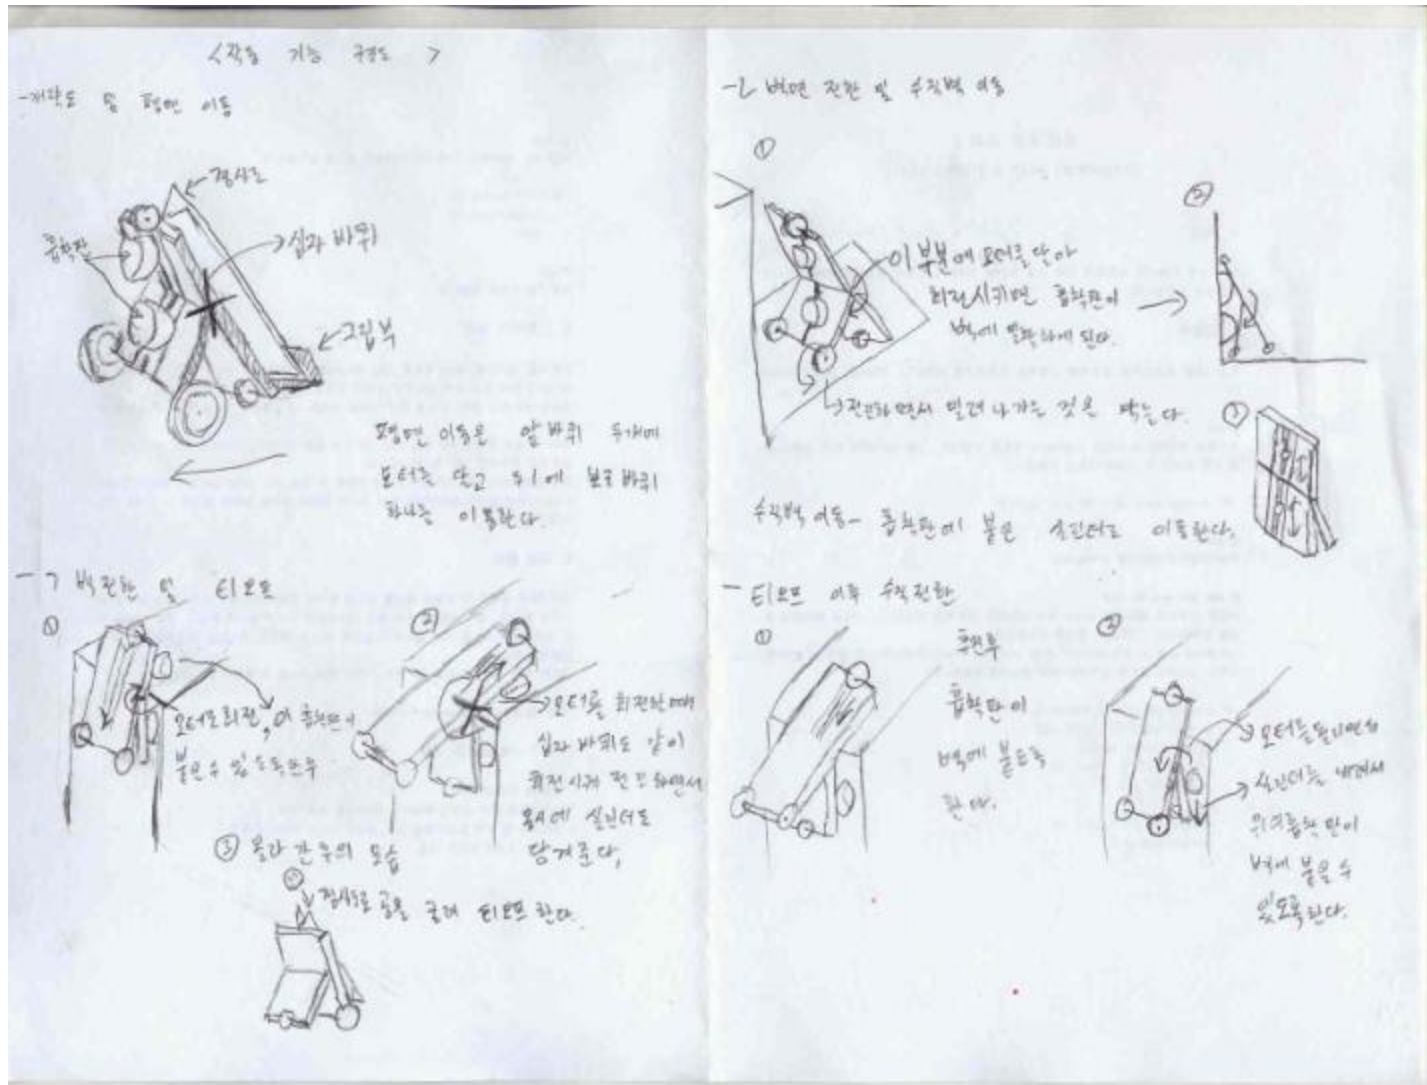 <작동 기능 구현도>
-제작도 및 평면 이동
경사로
흡착판
십자 바퀴
그립부
평면 이동은 앞바퀴 두개에
모터를 달고 뒤에 보조바퀴
하나를 이용한다.
-ㄱ 벽전환 및 티오프
①
모터로 회전, 이 흡착판이
붙을수 있도록 한후
②
모터를 회전할때
십자 바퀴도 같이
회전시켜 전진하면서
동시에 실린더로
당겨준다,
③ 올라간 후의 모습
경사로로 공을 굴려 티오프 한다.
-ㄴ 벽면 전환 및 수직벽 이동
①
이 부분에 모터를 달아
회전시키면 흡착판이
벽에 발판하게 된다.
②
전진하면서 밀려나가는 것을 막는다.
③
수직벽 이동- 흡착판에 붙은 실린더로 이동한다.
- 티오프 이후 수직전환
①
후면부
흡착판이
벽에 붙도록
한다.
②
모터를 돌리면서
실린더를 내려서
위쪽흡착판이
벽에 붙을 수
있도록한다.